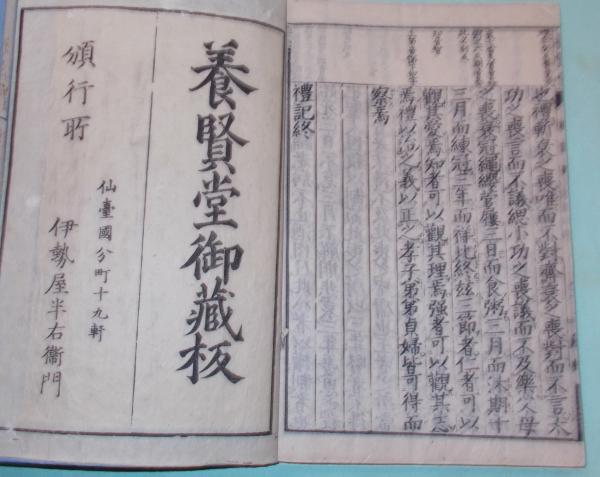 也禮斬衰之喪唯而不對齊衰之喪對而不言大
功之喪言而不議緦小功之喪議而不及樂父母
之喪衰冠繩纓菅屨三日而食粥三月而沐期十
三月而練冠三年而祥比終茲三節者仁者可以
觀其愛焉知者可以觀其理焉强者可以觀其志
焉禮以治之義以正之孝子弟弟貞婦皆可得而
察焉
禮記終
養賢堂御藏板
頒行所
仙臺國分町十九軒
伊勢屋半右衞門